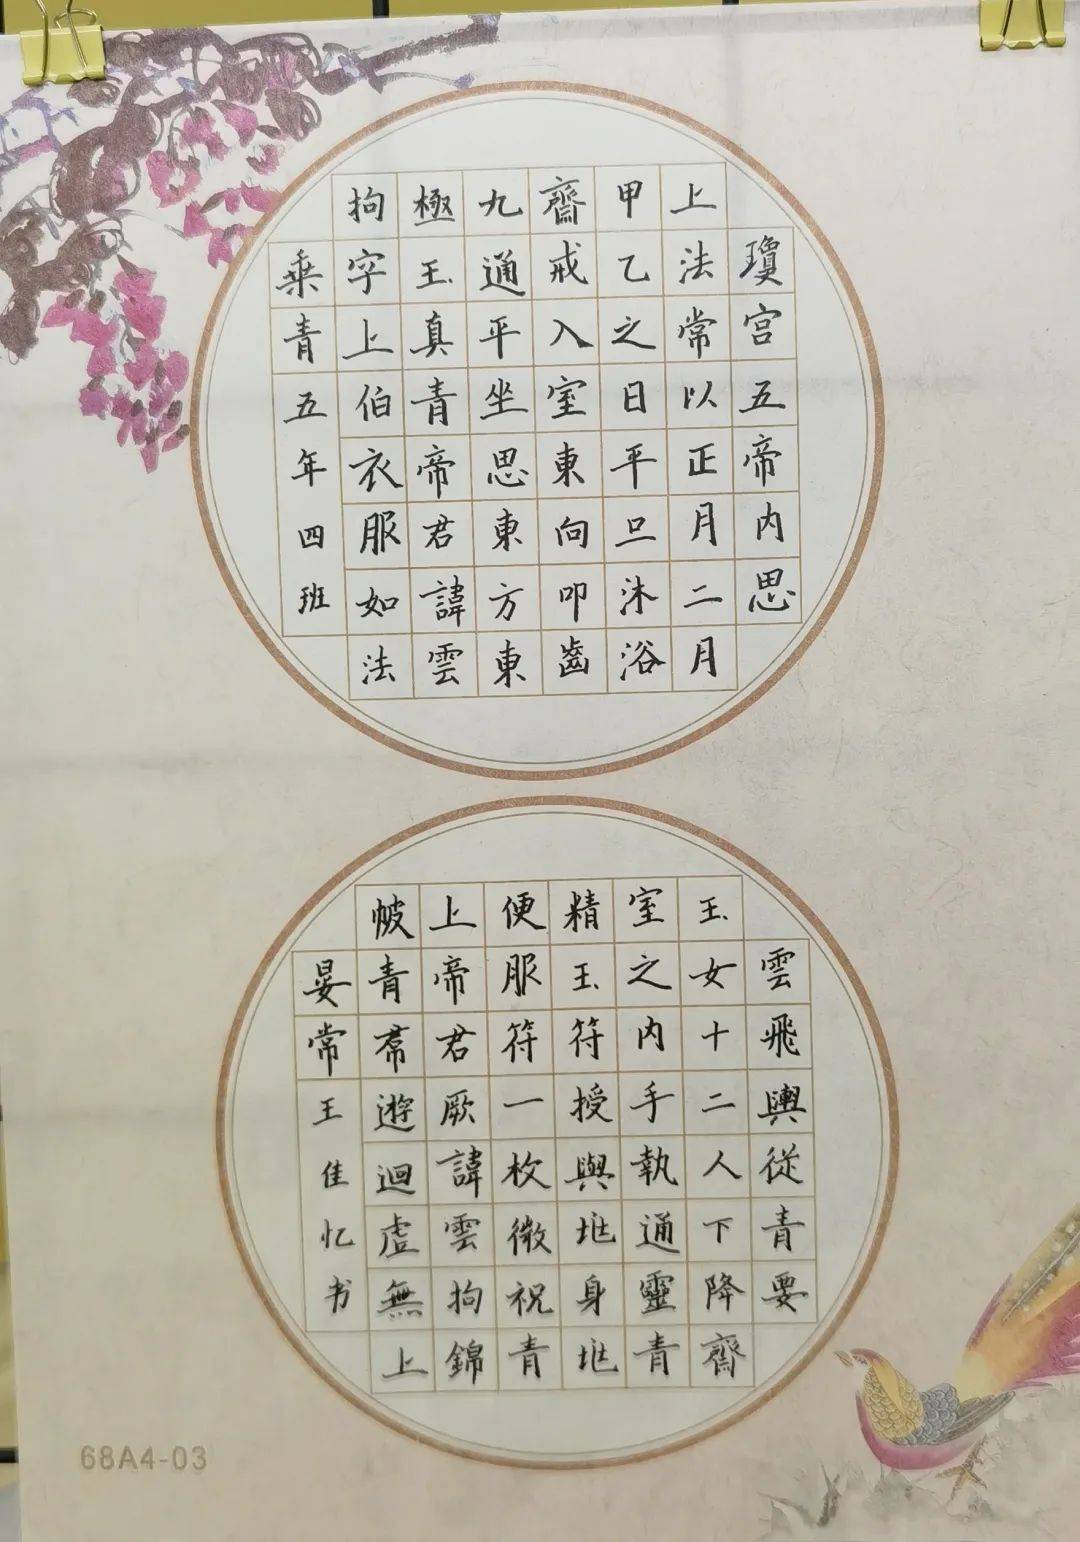 瓊宫五帝内思
上法常以正月二月
甲乙之日平旦沐浴
齋戒入室東向叩齒
九通平坐思東方東
極玉真青帝君諱雲
拘字上伯衣服如法
乘青
五年四班
雲飛輿從青要
玉女十二人下降齋
室之内手執通靈青
精玉符授與兆身兆
便服符一枚微祝青
上帝君厥諱雲拘錦
帔青帬遊迴虛無上
晏常
王佳忆书
68A4-03